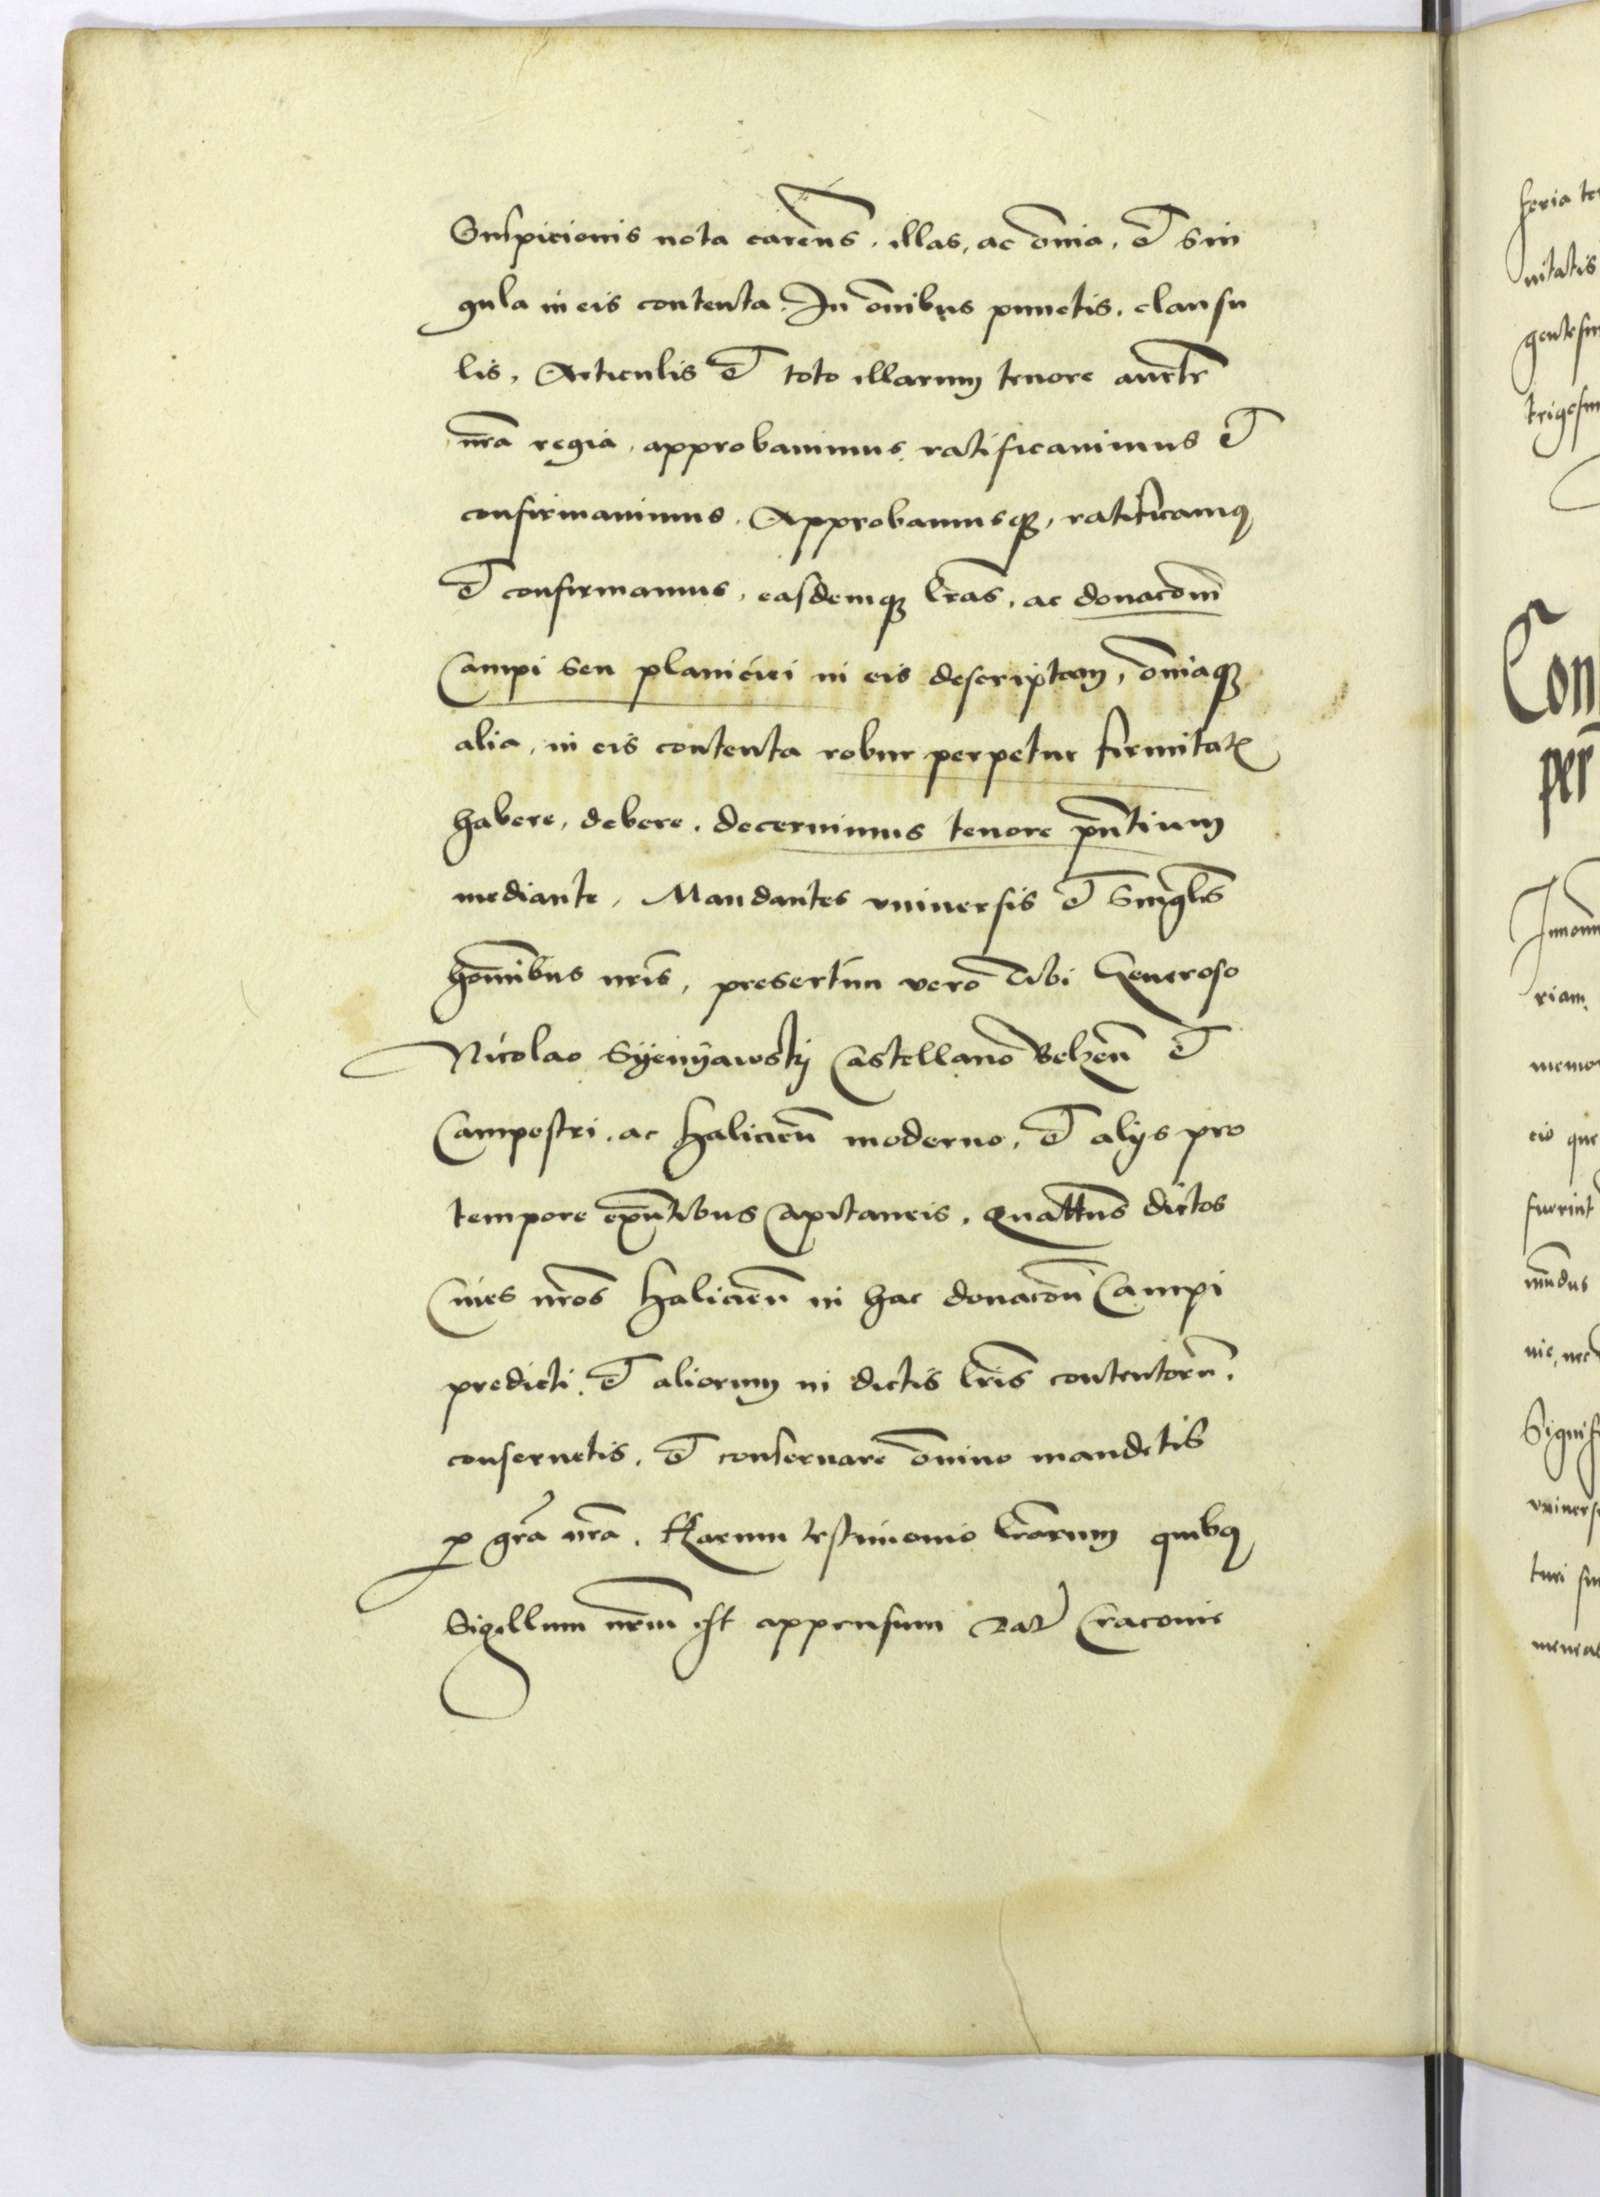 Suspicionis nota carens̄, illas, ac om̄ia, et Sin
gula in eis contenta, In om̄ibus punctis, clausu
lis, Articulis et toto illarum tenore auctēe
nrā regia, approbauimus, ratificauimus et
confirmauimus, Approbamusqꝫ, ratificamꝰ
et confirmamus, easdemqꝫ lrās, ac donacōm̄
Campi seu planiciei in eis descriptam, om̄iaqꝫ
alia, in eis contenta robur perpetue firmitatꝭ
habere, debere, decernimus tenore pn̄tium
mediante, Mandantes vniuersis et Singlis̄
hom̄inibus nrīs, presertim vero Tibi Generoso
Nicolao Syenyawskij Castellano Belzen̄ et
Campestri, ac Halicien̄ moderno, et alijs pro
tempore exn̄tibus Capitaneis, Quatt̄ns dictos
Ciues nrōs Halicien̄ in hac donacōn̄ Campi
predicti, et aliorum in dictis lrīs contentorū,
conseruetis, et conseruare om̄ino mandetis
ꝓ grā nrā, Harum testimonio lrārum quibꝰ
Sigillum nrm̄ est appensum Dat Cracouie
feria te
nitatis
gentesim
trigesim
Con
per
riam,
memor
cio que
fuerint
mūdus
nie, nec
Signifi
vniuers
turi su